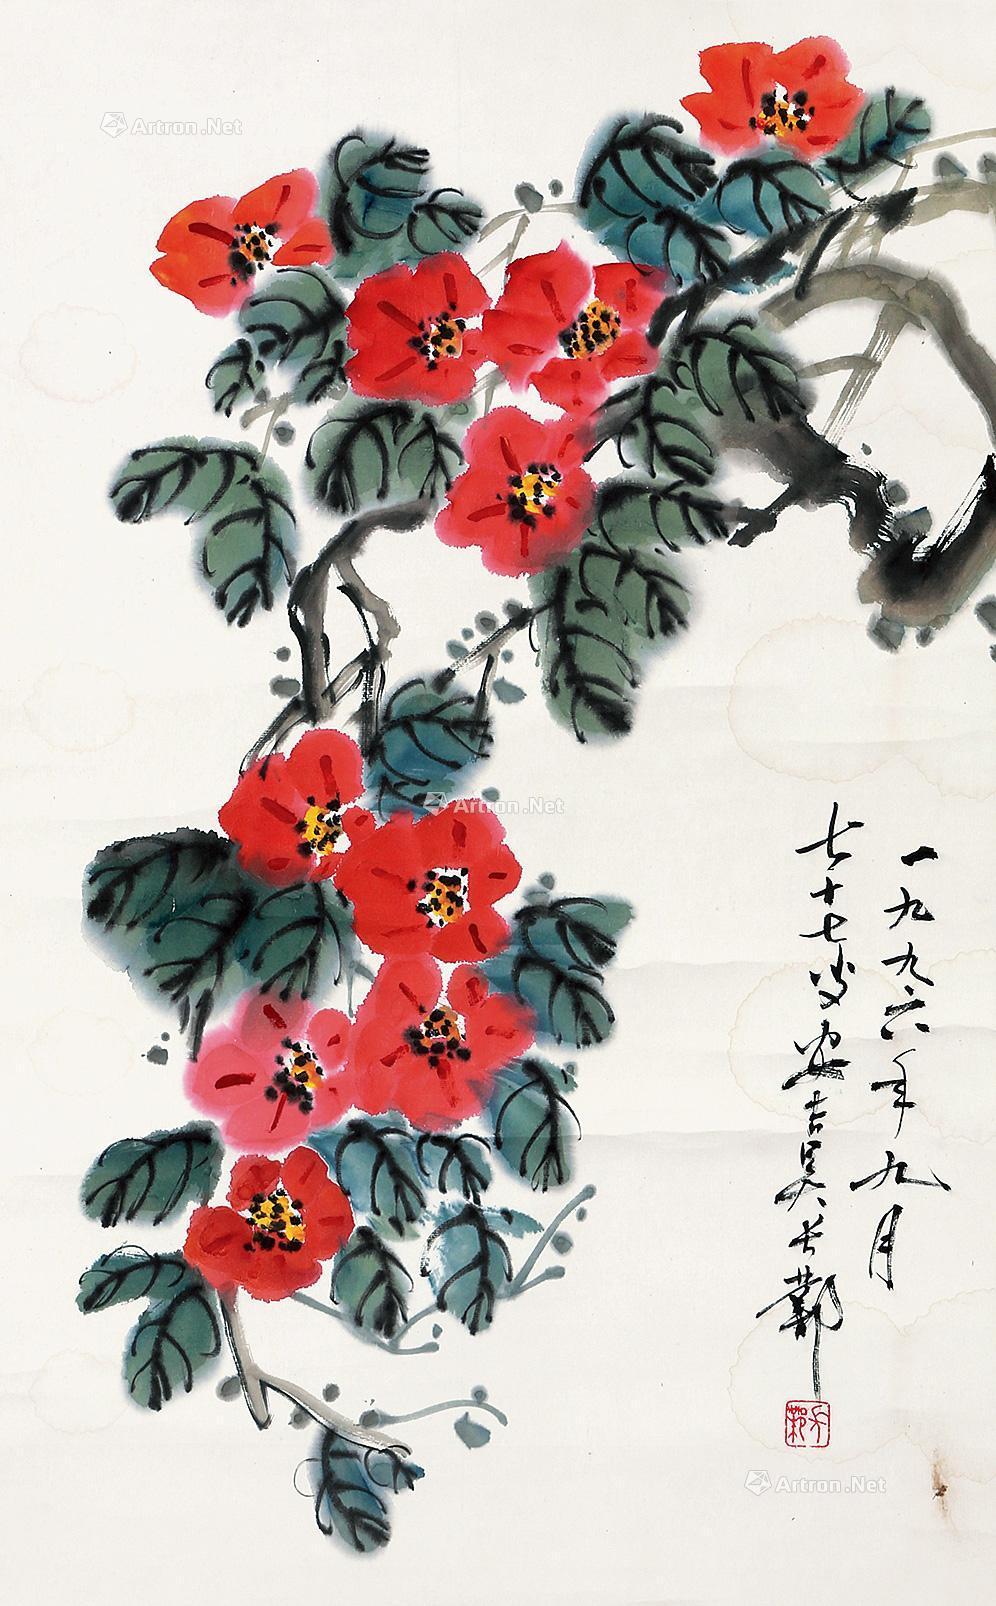 一九九六年九月
七十七叟安吉吴长邺
Artron.Net
Artron.Net
Artron.Net